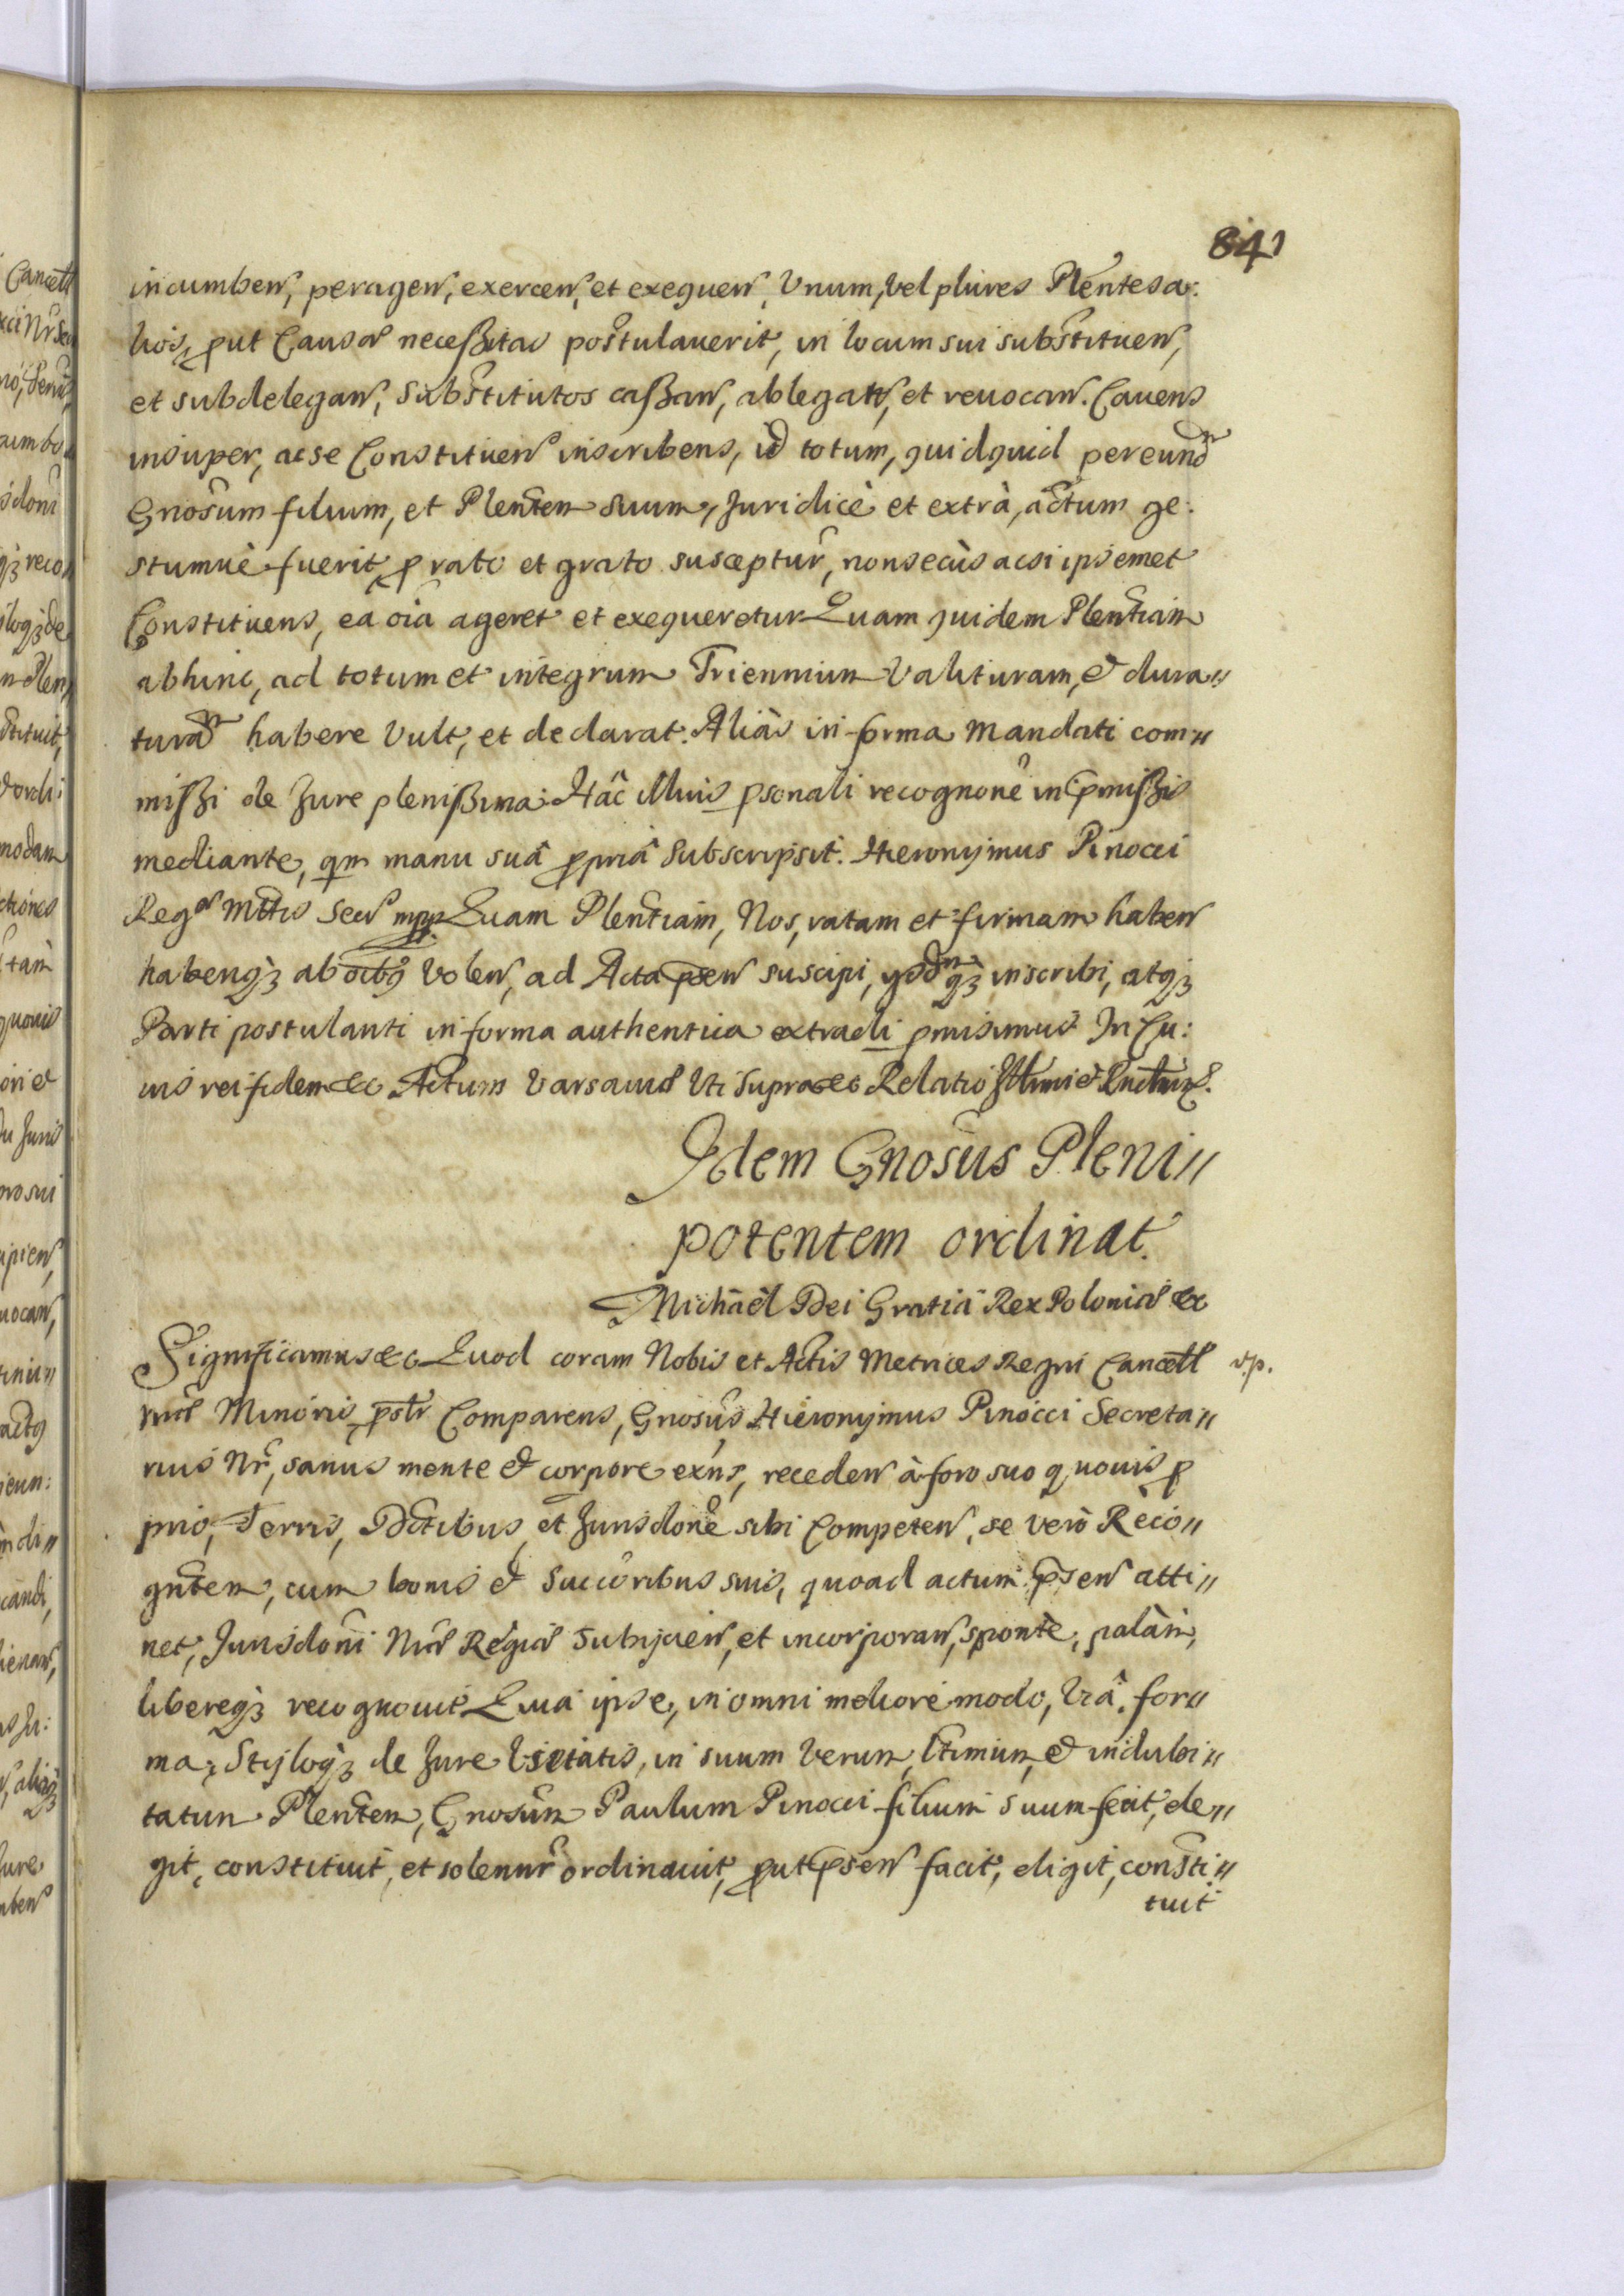 841
incumben, peragen, exercen, et exequen, Vnum, vel plures Plentes a:
lios, put Causæ neceßitas postulauerit, in locum sui substituen,
et subdelegan, substitutos caßan, ablegan, et reuocan. Cauens
insuper, ac se Constituen inscribens, id totum, quidquid per eundm
Gnosum filium, et Plentem suum, Juridicè et extrà, actum ge:
stumuè fuerit, p rato et grato susceptur, non secùs ac si ipsemet
Constituens, ea oia ageret et exequeretur Quam quidem Plentiam
abhinc, ad totum et integrum Triennium Valituram, & dura〃
turam habere Vult, et declarat. Aliàs in forma Mandati com〃
mißi de Jure plenißima: Hâc Illius psonali recognone in pmißis
mediante, qm manu suâ ppriâ subscripsit. Hieronymus Pinocci
Regæ Mttis Secr mpp Quam Plentiam, Nos, ratam et firmam haben
haberiqȝ ab oibȝ Volen, ad Acta psen suscipi, ysdmqȝ inscribi, atqȝ
Parti postulanti in forma authentica extradi pmisimus In Cu:
ius rei fidem &c Actum Varsauiæ Vti Supra &c Relatio Illmi &
Idem Gnosus Pleni〃
potentem ordinat.
Michaël Dei Gratiâ Rex Poloniæ &c
Significamus &c Quod coram Nobis et Actis Metrices Regni Cancell
v.p.
riæ Minoris pstr Comparens, Gnosus Hieronymus Pinocci Secreta〃
rius Nr, sanus mente & corpore exns, receden à foro suo quouis p
prio, Terris, Dctibus, et Jurisdone sibi Competen, se verò Reco〃
gntem, cum bonis & Succoribus suis, quoad actum psen atti〃
net, Jurisdoni Nræ Regiæ Subijcien, et incorporan, spontè, palàm,
libereqȝ recognouit Quia ipse, in omni meliore modo, Viâ, for〃
ma, Stijloqȝ de Jure Vsitatis, in suum Verum, ltimum, & indubi〃
tatum Plentem, Gnosum Paulum Pinocci filium suum fecit, ele〃
git, constituit, et solennr ordinauit, put psen facit, eligit, consti〃
tuit